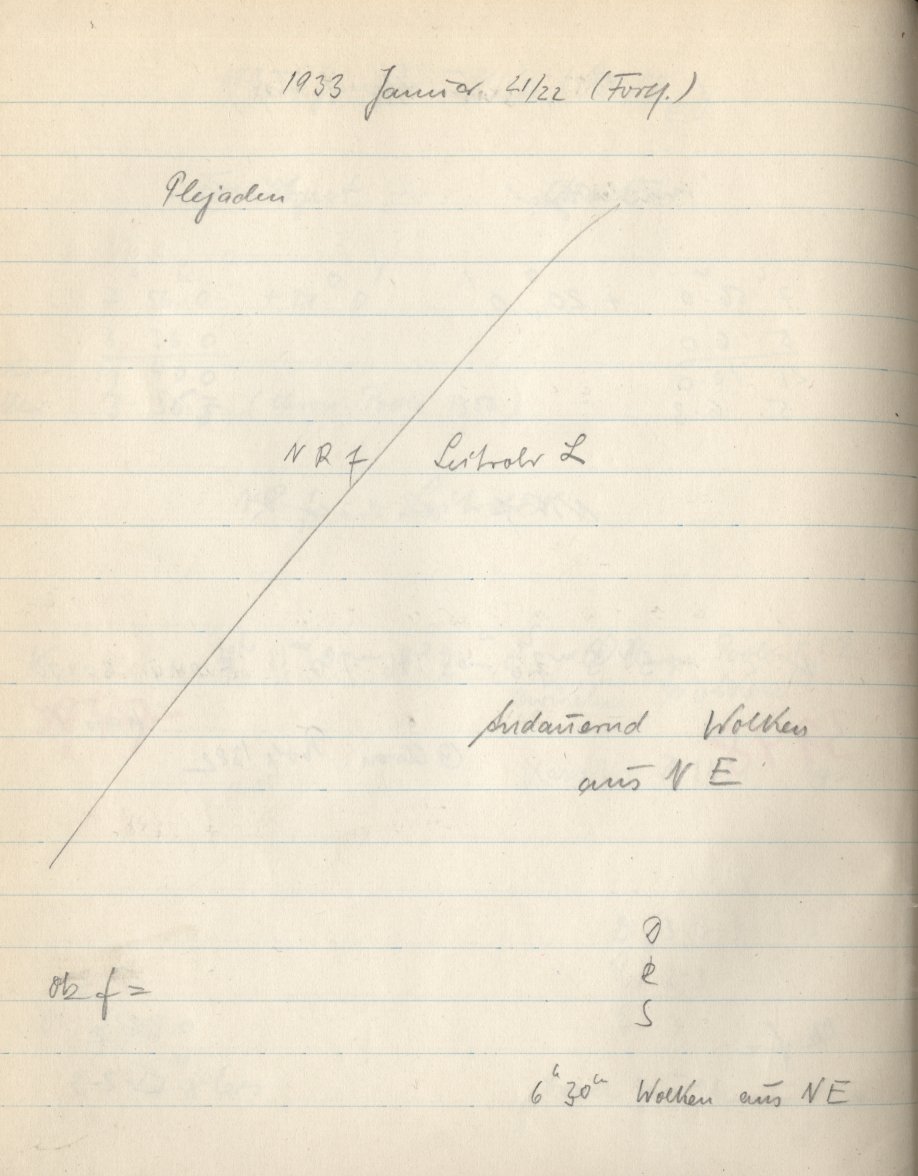 1933 Januar 21/22 (Forts.)
Plejaden
N R f Leitrohr L
Andauernd Wolken
aus N E
D
R
S
Ok f =
6h 30m Wolken aus NE